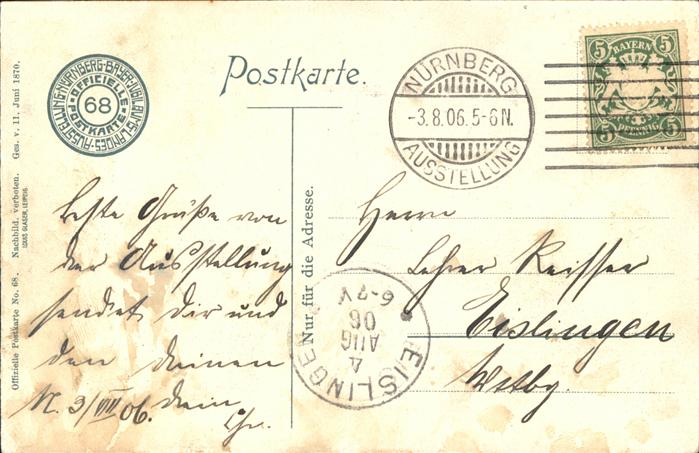 Postkarte.
AUSSTELLUNG·NÜRNBERG·BAYER·JUBILÄUMS·LANDES·
OFFICIELLE POSTKARTE
68
NÜRNBERG
-3.8.06.5-6N.
AUSSTELLUNG
5 BAYERN 5
5 PFENNIG 5
Offizielle Postkarte No. 68. Nachbild. verboten. Ges. v. 11. Juni 1870.
LOUIS GLASER, LEIPZIG.
Beste Grüße von
der Ausstellung
sendet Dir und
den Deinen
N. 3/VIII 06. Dein
Nur für die Adresse.
Herrn
Lehrer Reisser
Eislingen
Wttbg.
EISLINGEN
4
AUG
06
6-7 V